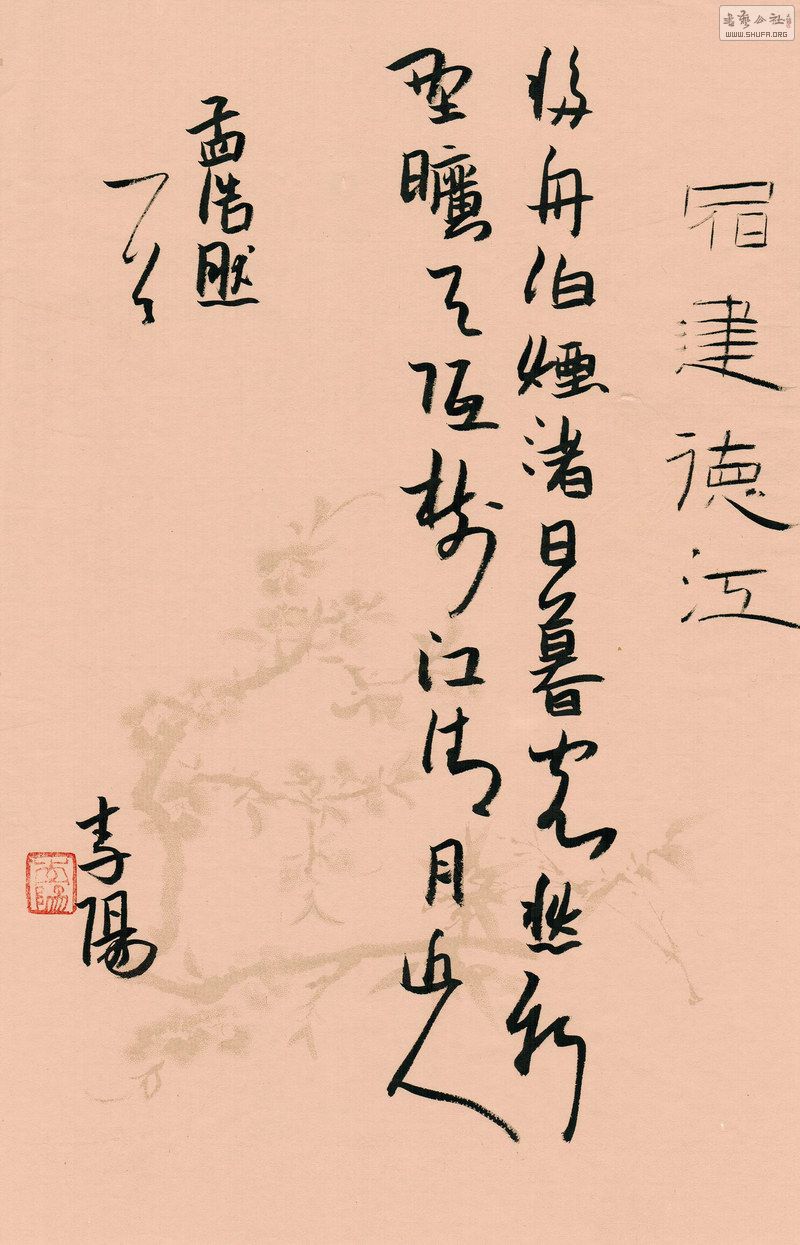 宿建德江
移舟泊煙渚日暮客愁新
野曠天低樹江清月近人
孟浩然
李陽
書藝公社
WWW.SHUFA.ORG